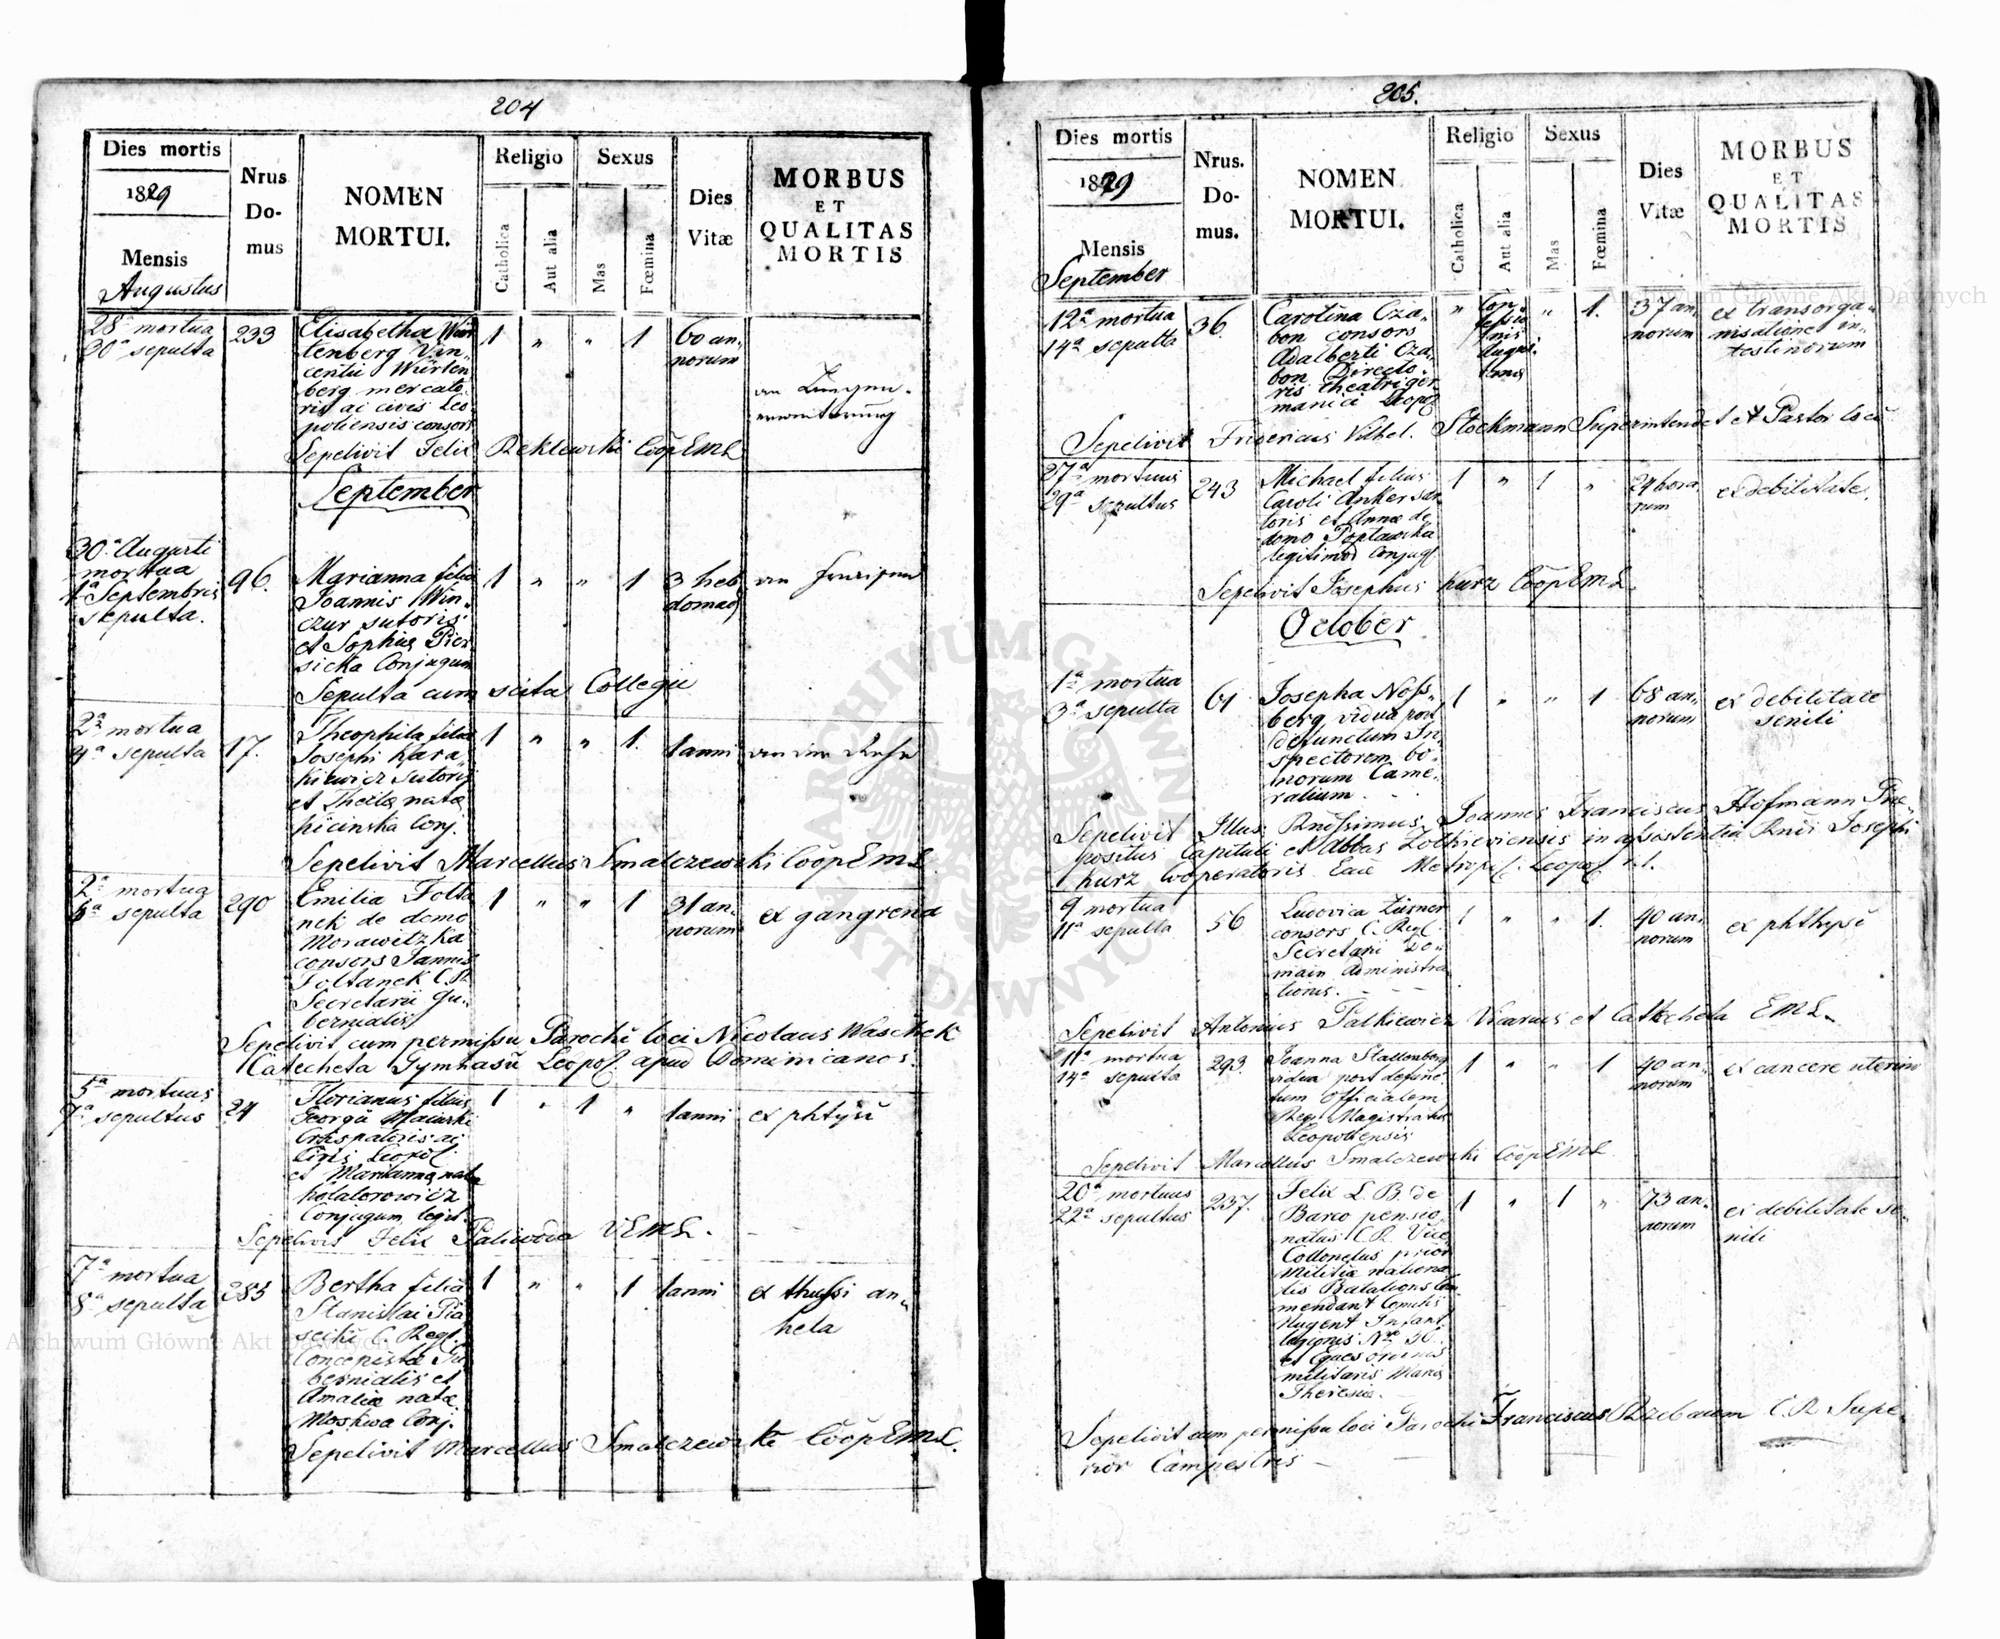 204
Dies mortis
1829
Mensis
Augustus
Nrus
Do-
mus
NOMEN
MORTUI.
Religio
Catholica
Aut alia
Sexus
Mas
Fœmina
Dies
Vitæ
MORBUS
ET
QUALITAS
MORTIS
28ª mortua
30ª sepulta
233
Elisabetha Wür
tenberg Vin-
centii Würten
berg mercato
ris ac civis Leo-
poliensis consors
1 " " 1
60 an-
norum
an Lungen-
Sepelivit Felix Reklewski CoopEML
September
30ª Augusti
mortua
1ª Septembris
sepulta.
96.
Marianna filia
Joannis Win-
czur sutoris
et Sophiæ Pier
sicka Conjugum
1 " " 1
3 heb
domad
an Fraisen
Sepulta cum scitu Collegii
2ª mortua
4ª sepulta
17.
Theophila filia
Josephi Kara-
kiewicz Sutoris
et Theclæ natæ
Kicinska Conj.
1 " " 1.
1 anni
an der Ruhr
Sepelivit Marcellus Smalczewski CoopEML
2ª mortua
sepulta
290
Emilia Folta
nek de domo
Morawitzka
consors Joannis
Foltanek C.R.
Secretarii Gu-
bernialis
1 " " 1
31 an-
norum
ex gangrena
Sepelivit cum permissu Parochi loci Nicolaus Waschek
Catecheta Gymnasii Leopol. apud Dominicanos.
5ª mortuus
7ª sepultus
24
Florianus filius
Georgii
ac
Civis Leopol.
et Marianna natæ
Conjugum legit.
1 " 1 "
1 anni
ex phtysi
Sepelivit Felix Paliwoda VEML.
7ª mortua
8ª sepulta
285
Bertha filia
Stanislai Pia
secki C. Reg.
Concepistæ Gu
bernialis et
Amaliæ natæ
Moskwa Conj.
1 " " 1
1 anni
ex thussi an-
hela
Sepelivit Marcellus Smalczewski CoopEML.
205.
Dies mortis
1829
Mensis
September
Nrus.
Do-
mus.
NOMEN
MORTUI.
Religio
Catholica
Aut alia
Sexus
Mas
Fœmina
Dies
Vitæ
MORBUS
ET
QUALITAS
MORTIS
12ª mortua
14ª sepulta
36.
Carolina Cza-
bon consors
Adalberti Cza-
bon Directo-
ris theatri ger
manici Leopol
" Con
fessio
nis
Augus-
tanæ
" 1.
37 an-
norum
ex transorga-
nisatione in-
testinorum
Sepelivit Fridericus Vilhel. Stockmann Superintendet et Pastor loci
27ª mortuus
29ª sepultus
243
Michael filius
Caroli Anker sar
toris et Annæ de
domo Poptawska
legitimor Conjug
1 " 1 "
24 hora
rum
ex debilitate.
Sepelivit Josephus Kurz CoopEML.
October
1ª mortua
3ª sepulta
61
Josepha Noss-
berg vidua post
defunctum In-
spectorem bo-
norum Came-
ralium
1 " " 1
68 an-
norum
ex debilitate
senili
Sepelivit Illus: Rndissimus Joannes Franciscus Hofmann Præ-
positus Capituli et Abbas Zolkieviensis in assistentia Rndi Josephi
Kurz Cooperatoris Ecæ Metropol. Leopol r.l.
9 mortua
11ª sepulta
56
Ludovica Züsner
consors C. Reg.
Secretarii Do-
main administra
tionis.
1 " " 1.
40 an-
norum
ex phthysi
Sepelivit Antonius Falkiewicz Vicarius et Catecheta EML.
11ª mortua
14ª sepulta
293.
Joanna Stallenberg
vidua post defunc
tum Officialem
Reg. Magistratus
Leopoliensis
1 " " 1
40 an-
norum
ex cancere uterino
Sepelivit Marcellus Smalczewski CoopEML
20ª mortuus
22ª sepultus
237.
Felix L. B. de
Barco pensio
natus C.R. Vice
Collonelus prior
Militiæ nationa
lis Batalions Com
mendant Comitis
Nugent Infant.
legionis Nro 30.
et Eques ordinis
militaris Mariæ
Theresiæ.
1 " 1 "
73 an-
norum
ex debilitate se-
nili
Sepelivit cum permissu loci Parochi Franciscus Rzebaum C.R. Supe-
rior Campestris
Archiwum Główne Akt Dawnych
Archiwum Główne Akt Dawnych
ARCHIWUM GŁÓWNE AKT DAWNYCH